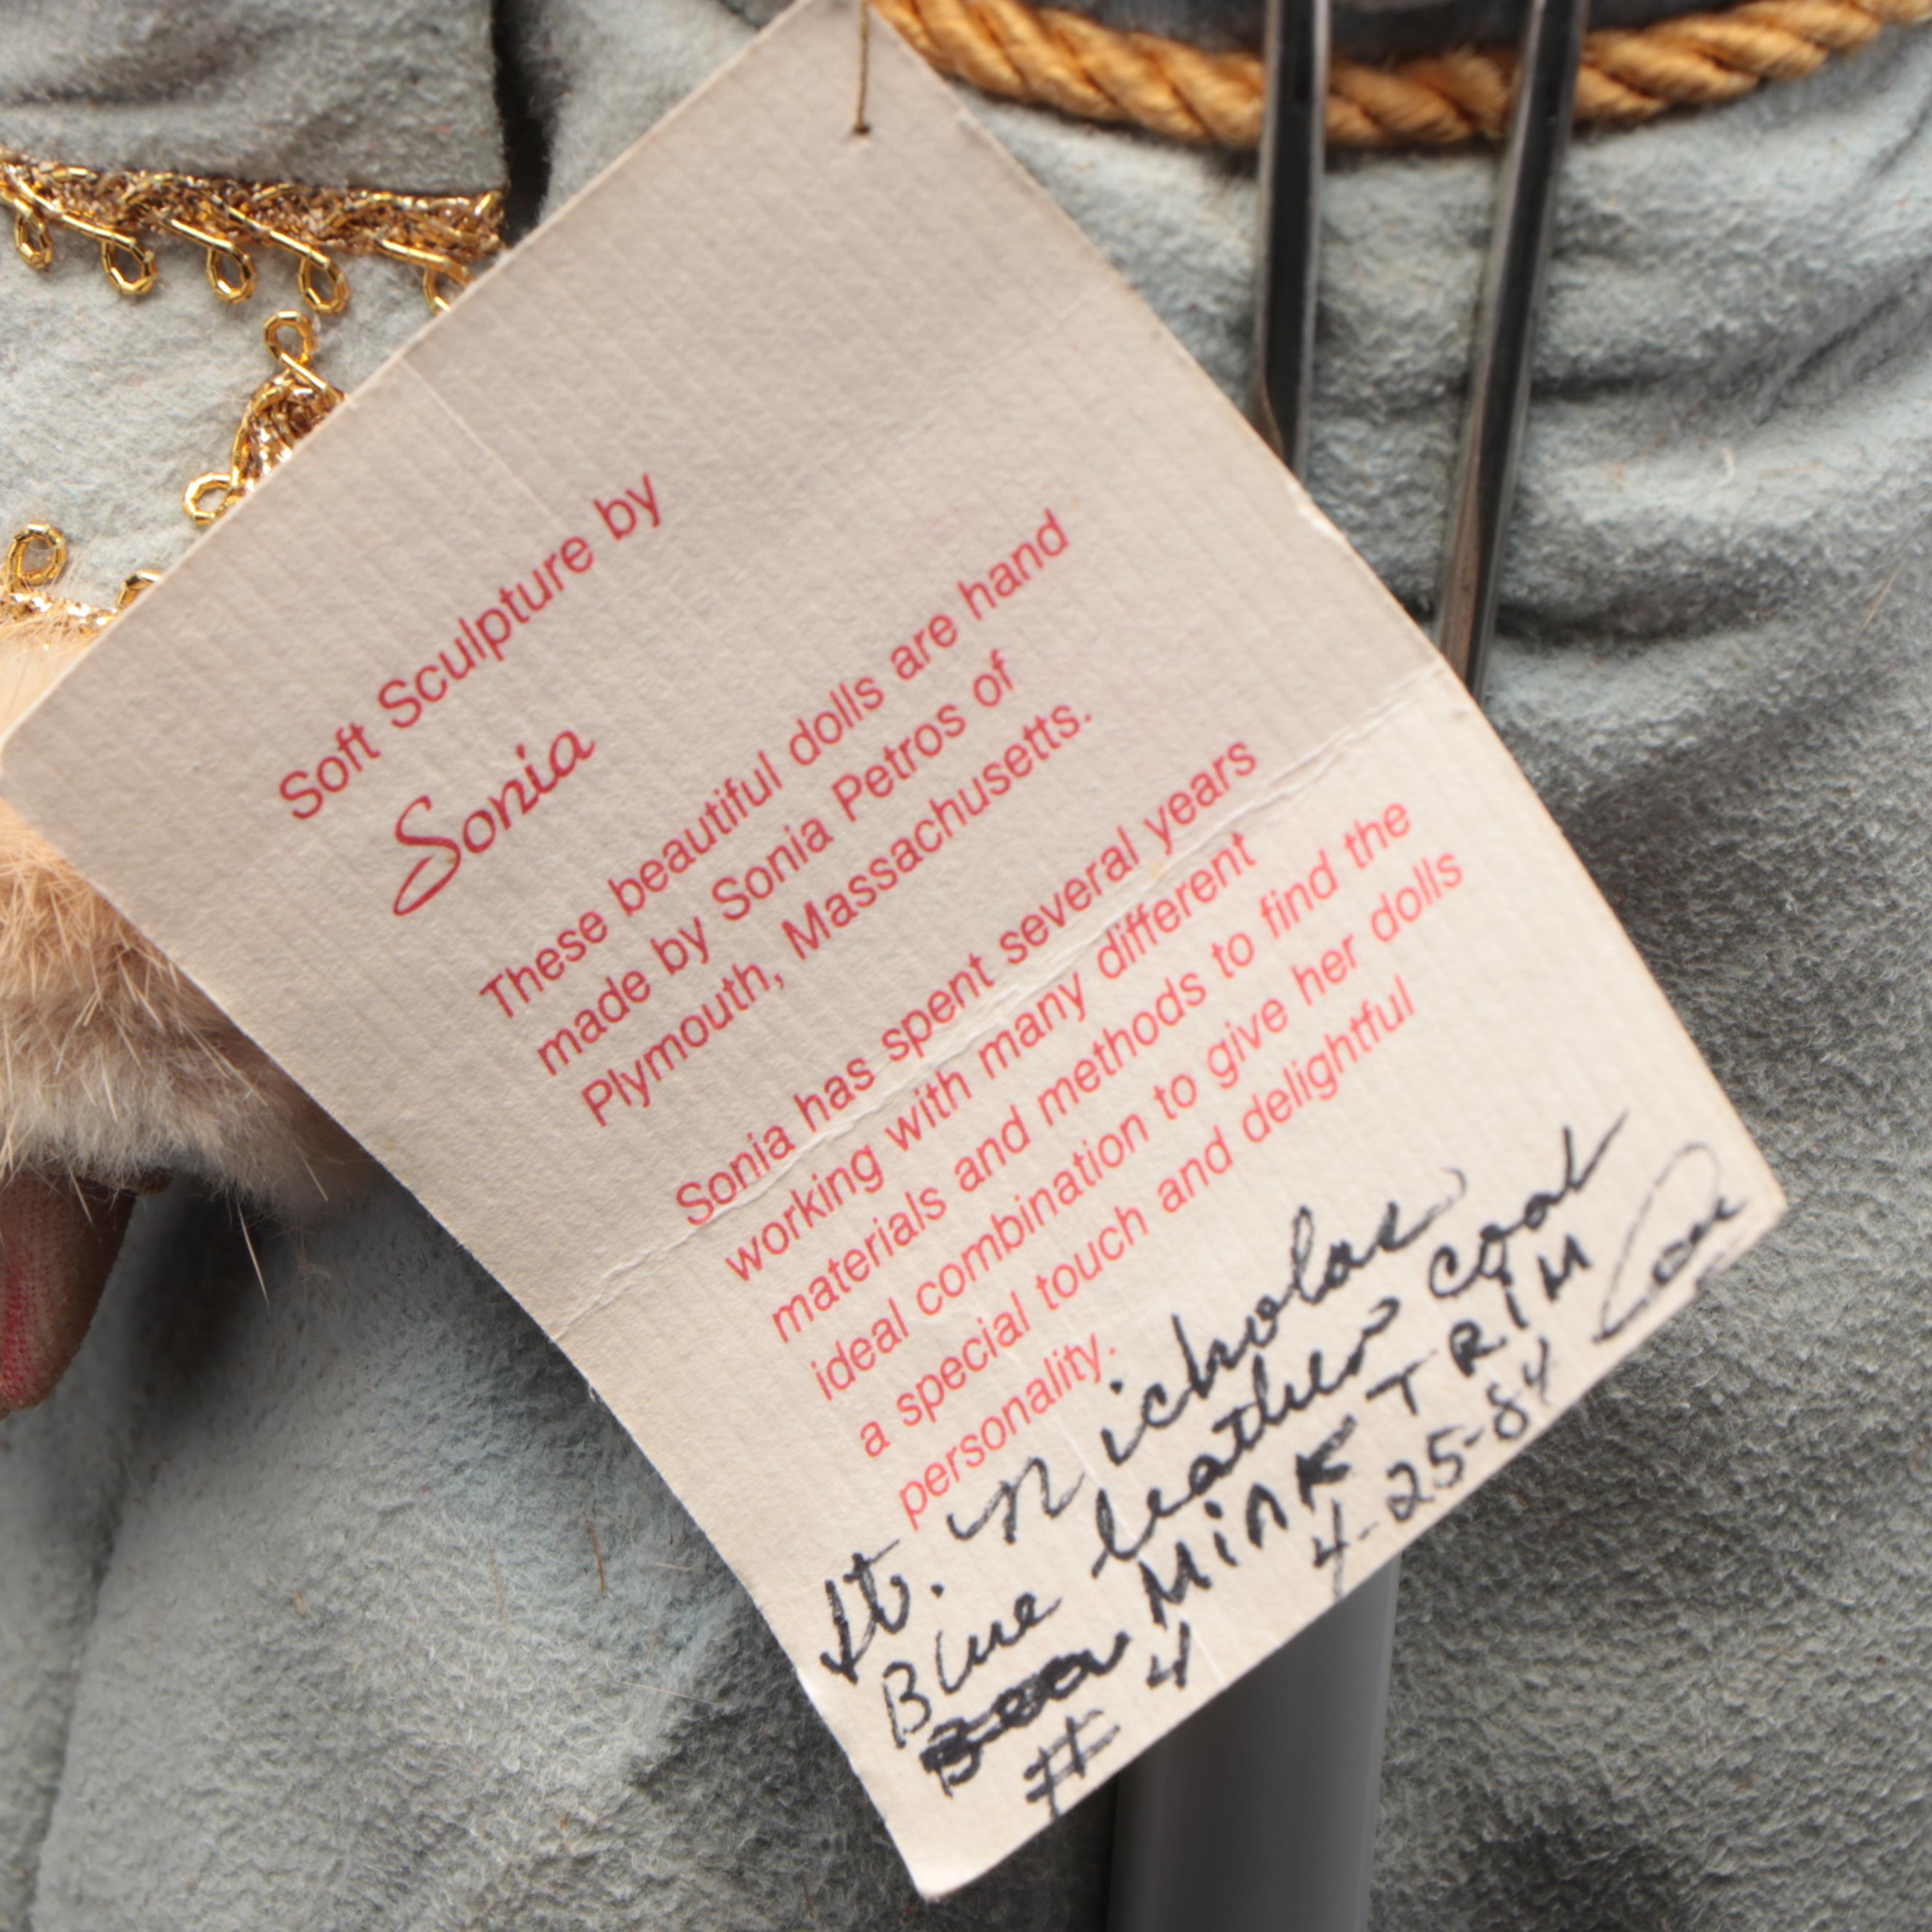 Soft Sculpture by
Sonia
These beautiful dolls are hand
made by Sonia Petros of
Plymouth, Massachusetts.
Sonia has spent several years
working with many different
materials and methods to find the
ideal combination to give her dolls
a special touch and delightful
personality.
St. Nicholas
Blue leather coat
MiNK TRiM
# 4 4-25-84